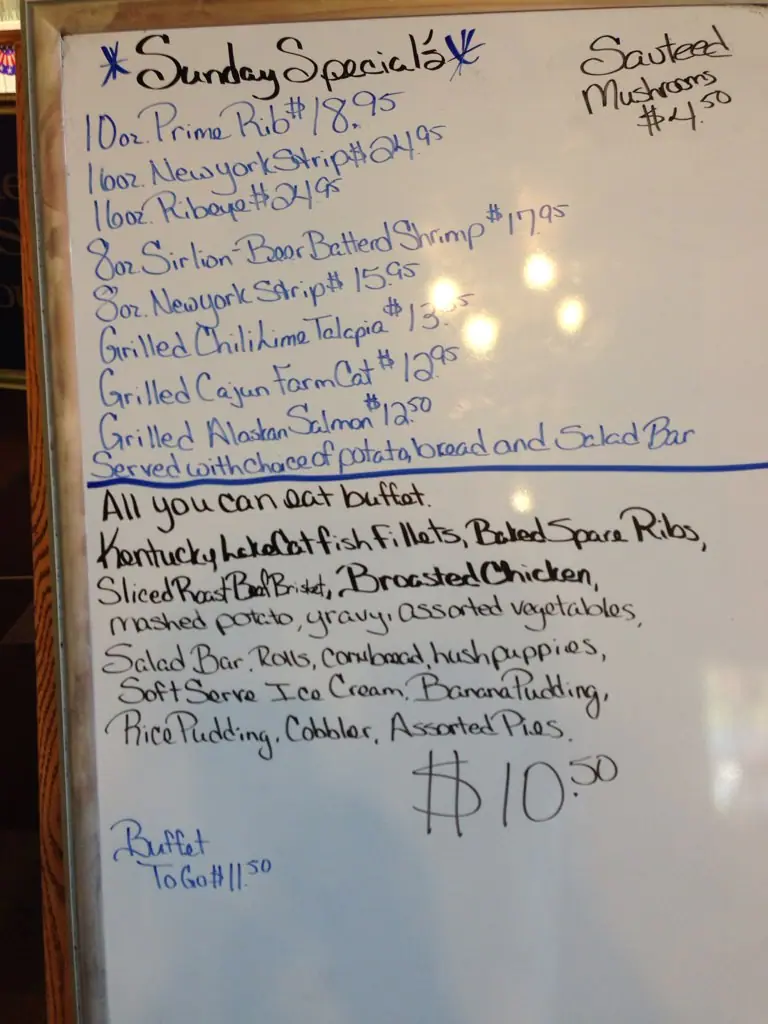 *Sunday Special's*
Sauteed
Mushrooms
$4.50
10oz. Prime Rib $18.95
16oz. Newyork Strip $24.95
16oz. Ribeye $24.95
8oz. Sirlion-Beer Batterd Shrimp $17.95
8oz. Newyork Strip $15.95
Grilled Chili Lime Talapia $13.
Grilled Cajun Farm Cat $12.95
Grilled Alaskan Salmon $12.50
Served with choice of potato, bread and Salad Bar
All you can eat buffet.
Kentucky Lake Catfish Fillets, Baked Spare Ribs,
Sliced Roast Beef Brisket, Broasted Chicken,
mashed potato, gravy, assorted vegetables,
Salad Bar. Rolls, cornbread, hushpuppies,
Soft Serve Ice Cream. Banana Pudding,
Rice Pudding, Cobbler, Assorted Pies.
$10.50
Buffet
To Go $11.50